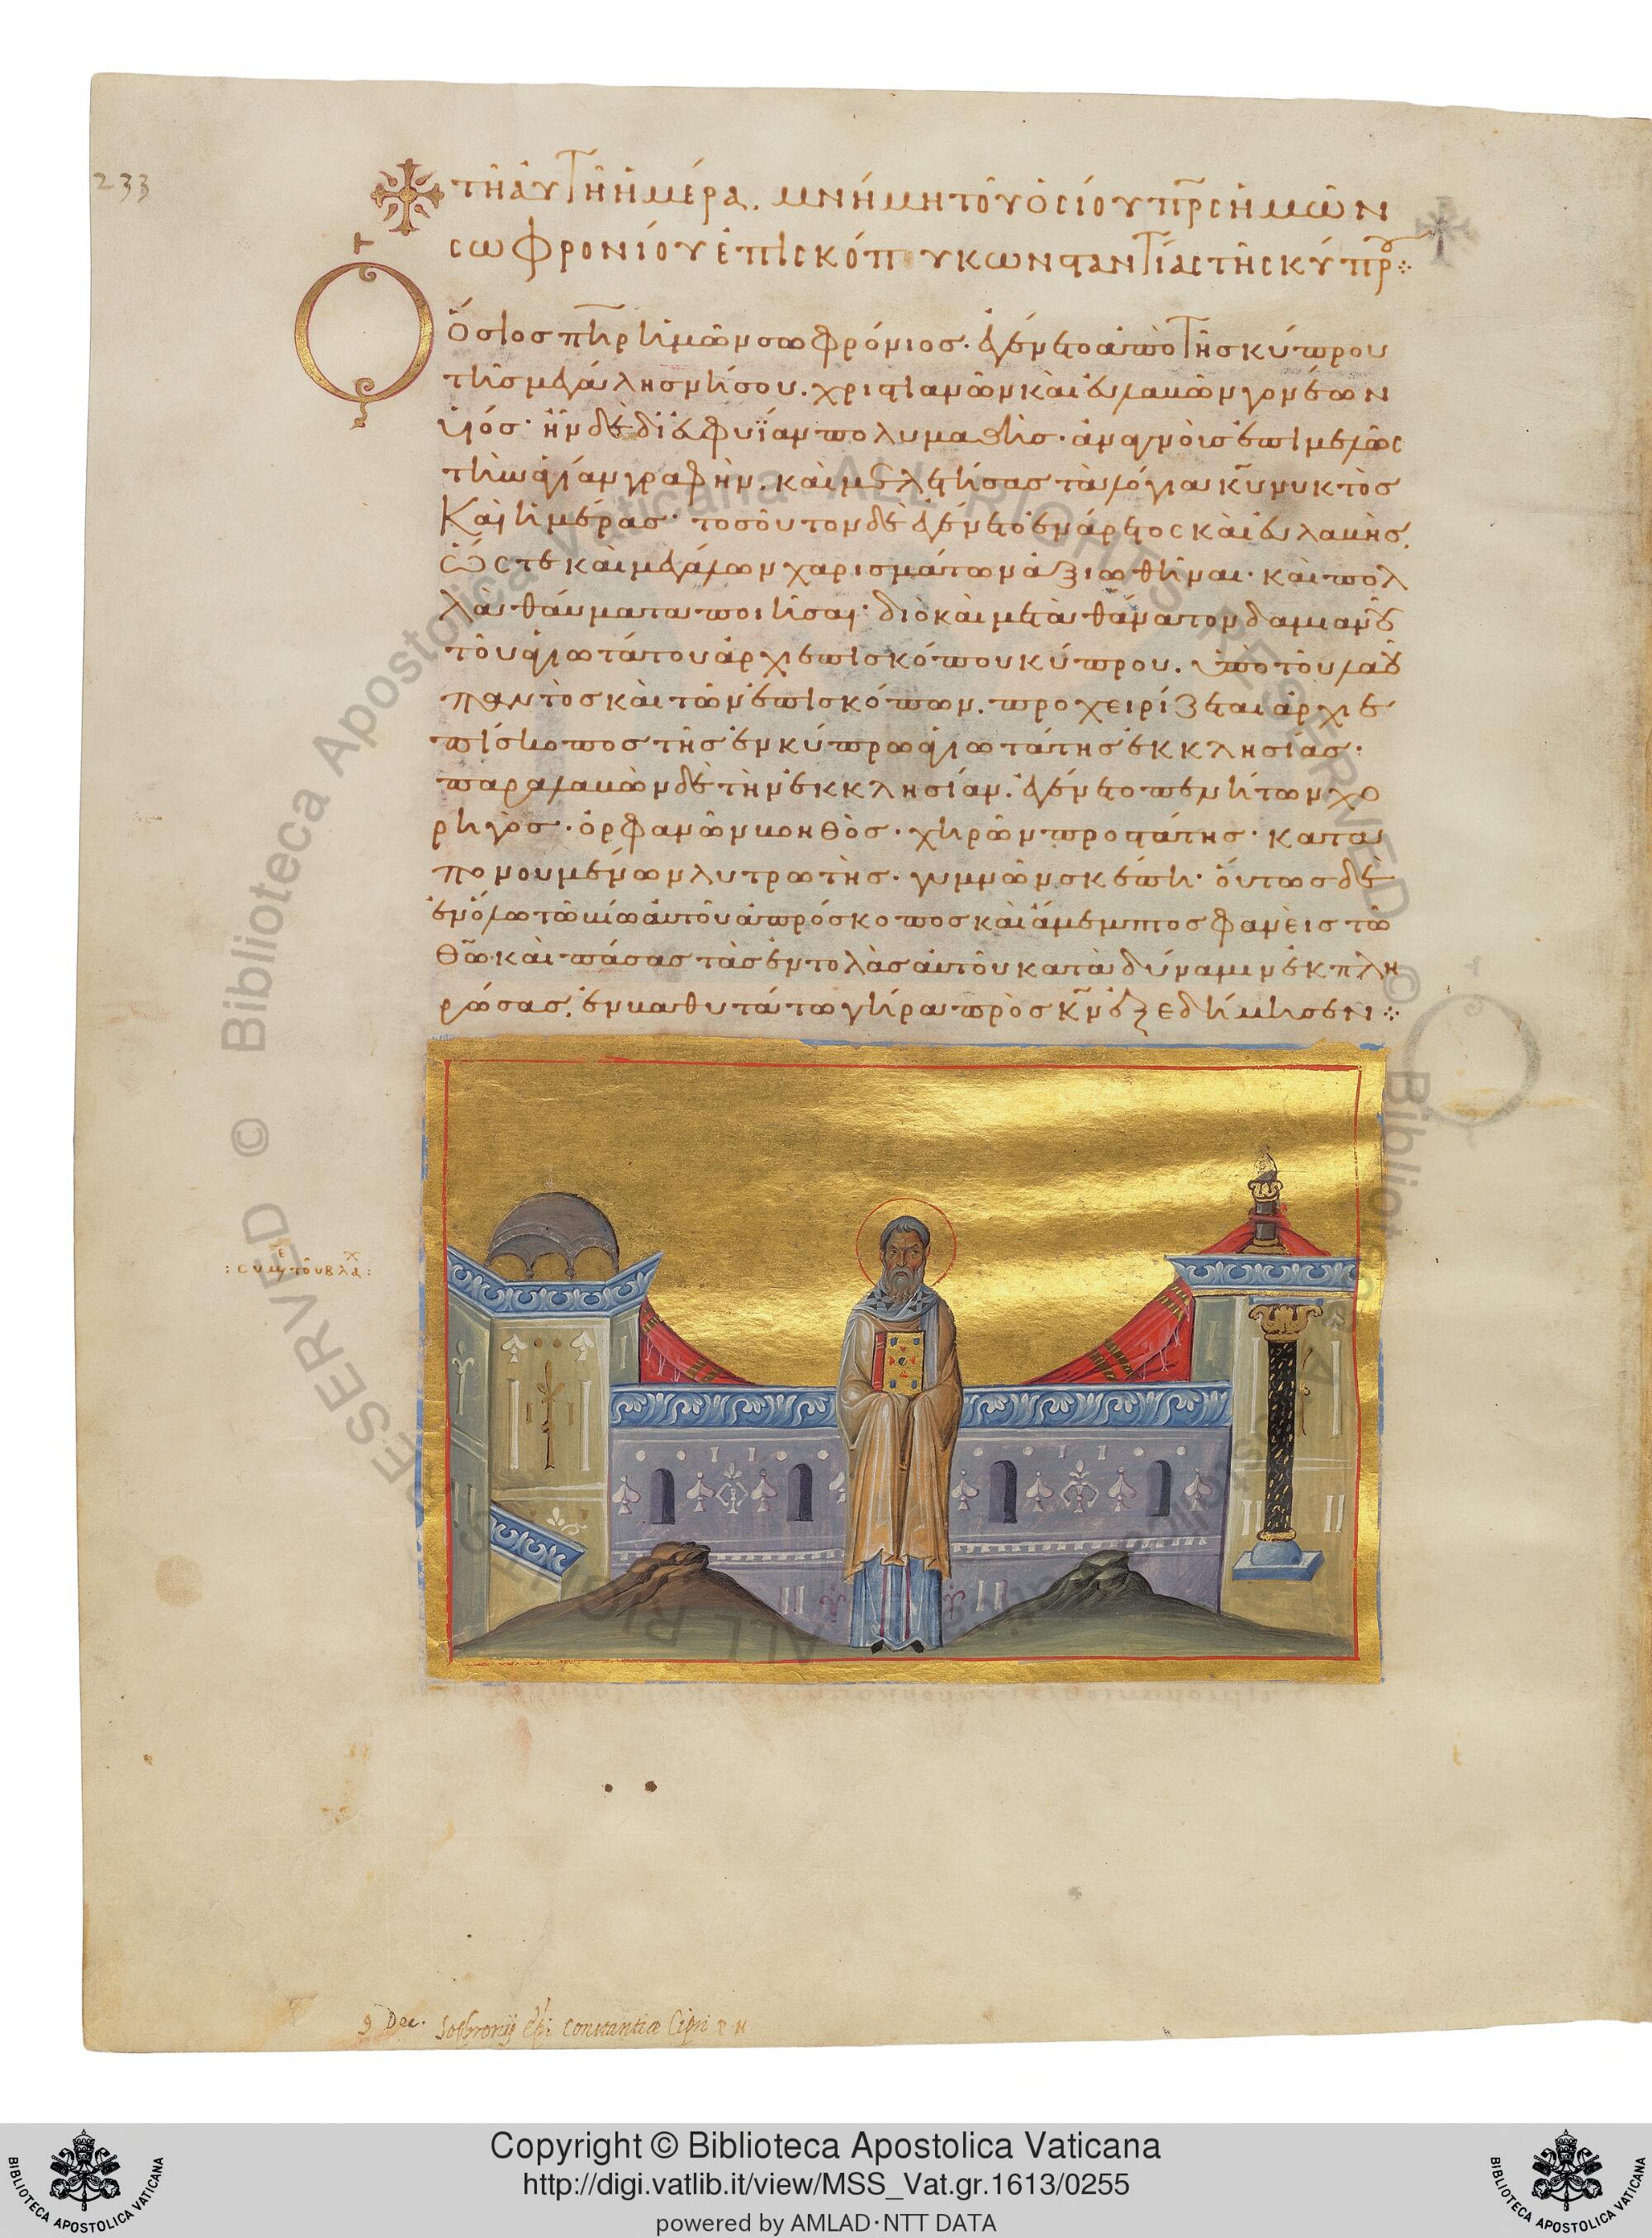 233
τῆ αὐτῆ ἡμέρα. μνήμη τοῦ ὁσίου πρς ἡμῶν
σωφρονίου ἐπισκόπου κωνσταντίας τῆς κύπρου
Ὁ ὅσιος πηρ ἡμῶν σωφρόνιος· ἐγένετο ἀπὸ τῆς κύπρου
τῆς μεγάλης νήσου. χριστιανῶν καὶ εὐλαβῶν γονέων
υἱός· ἦν δὲ δι' εὐφυΐαν πολυμαθὴς· ἀναγνοὺς ἐπιμελῶς
τὴν ἁγίαν γραφὴν. καὶ μελετήσας τὰ λόγια κῦ νυκτὸς
Καὶ ἡμέρας· τοσοῦτον δὲ ἐγένετο ἐνάρετος καὶ εὐλαβὴς,
ὥστε καὶ μεγάλων χαρισμάτων ἀξιωθῆναι· καὶ πολ
λὰ θαύματα ποιῆσαι· διὸ καὶ μετὰ θάνατον δαμιανοῦ
τοῦ ἁγιωτάτου ἀρχιεπισκόπου κύπρου. ὑπὸ τοῦ λαοῦ
παντὸς καὶ τῶν ἐπισκόπων. προχειρίζεται ἀρχιε
πίσκοπος τῆς ἐν κύπρω ἁγιωτάτης ἐκκλησίας·
παραλαβὼν δὲ τὴν ἐκκλησίαν. ἐγένετο πενήτων χο
ρηγὸς· ὀρφανῶν βοηθὸς· χηρῶν προστάτης· κατα
πονουμένων λυτρωτὴς· γυμνῶν σκέπη· οὕτως δὲ
ἐν ὅλω τῶ βίω αὐτοῦ ἀπρόσκοπος καὶ ἄμεμπτος φανεὶς τῶ
θῶ καὶ πάσας τὰς ἐντολὰς αὐτοῦ κατὰ δύναμιν ἐκπλη
ρώσας, ἐν βαθυτάτω γήρα πρὸς κν ἐξεδήμησεν
: συμε τοῦ βλαχ :
9 Dec. Sophronij Epi Constantiæ Cipri
Copyright © Biblioteca Apostolica Vaticana
http://digi.vatlib.it/view/MSS_Vat.gr.1613/0255
powered by AMLAD·NTT DATA
BIBLIOTECA APOSTOLICA VATICANA
BIBLIOTECA APOSTOLICA VATICANA